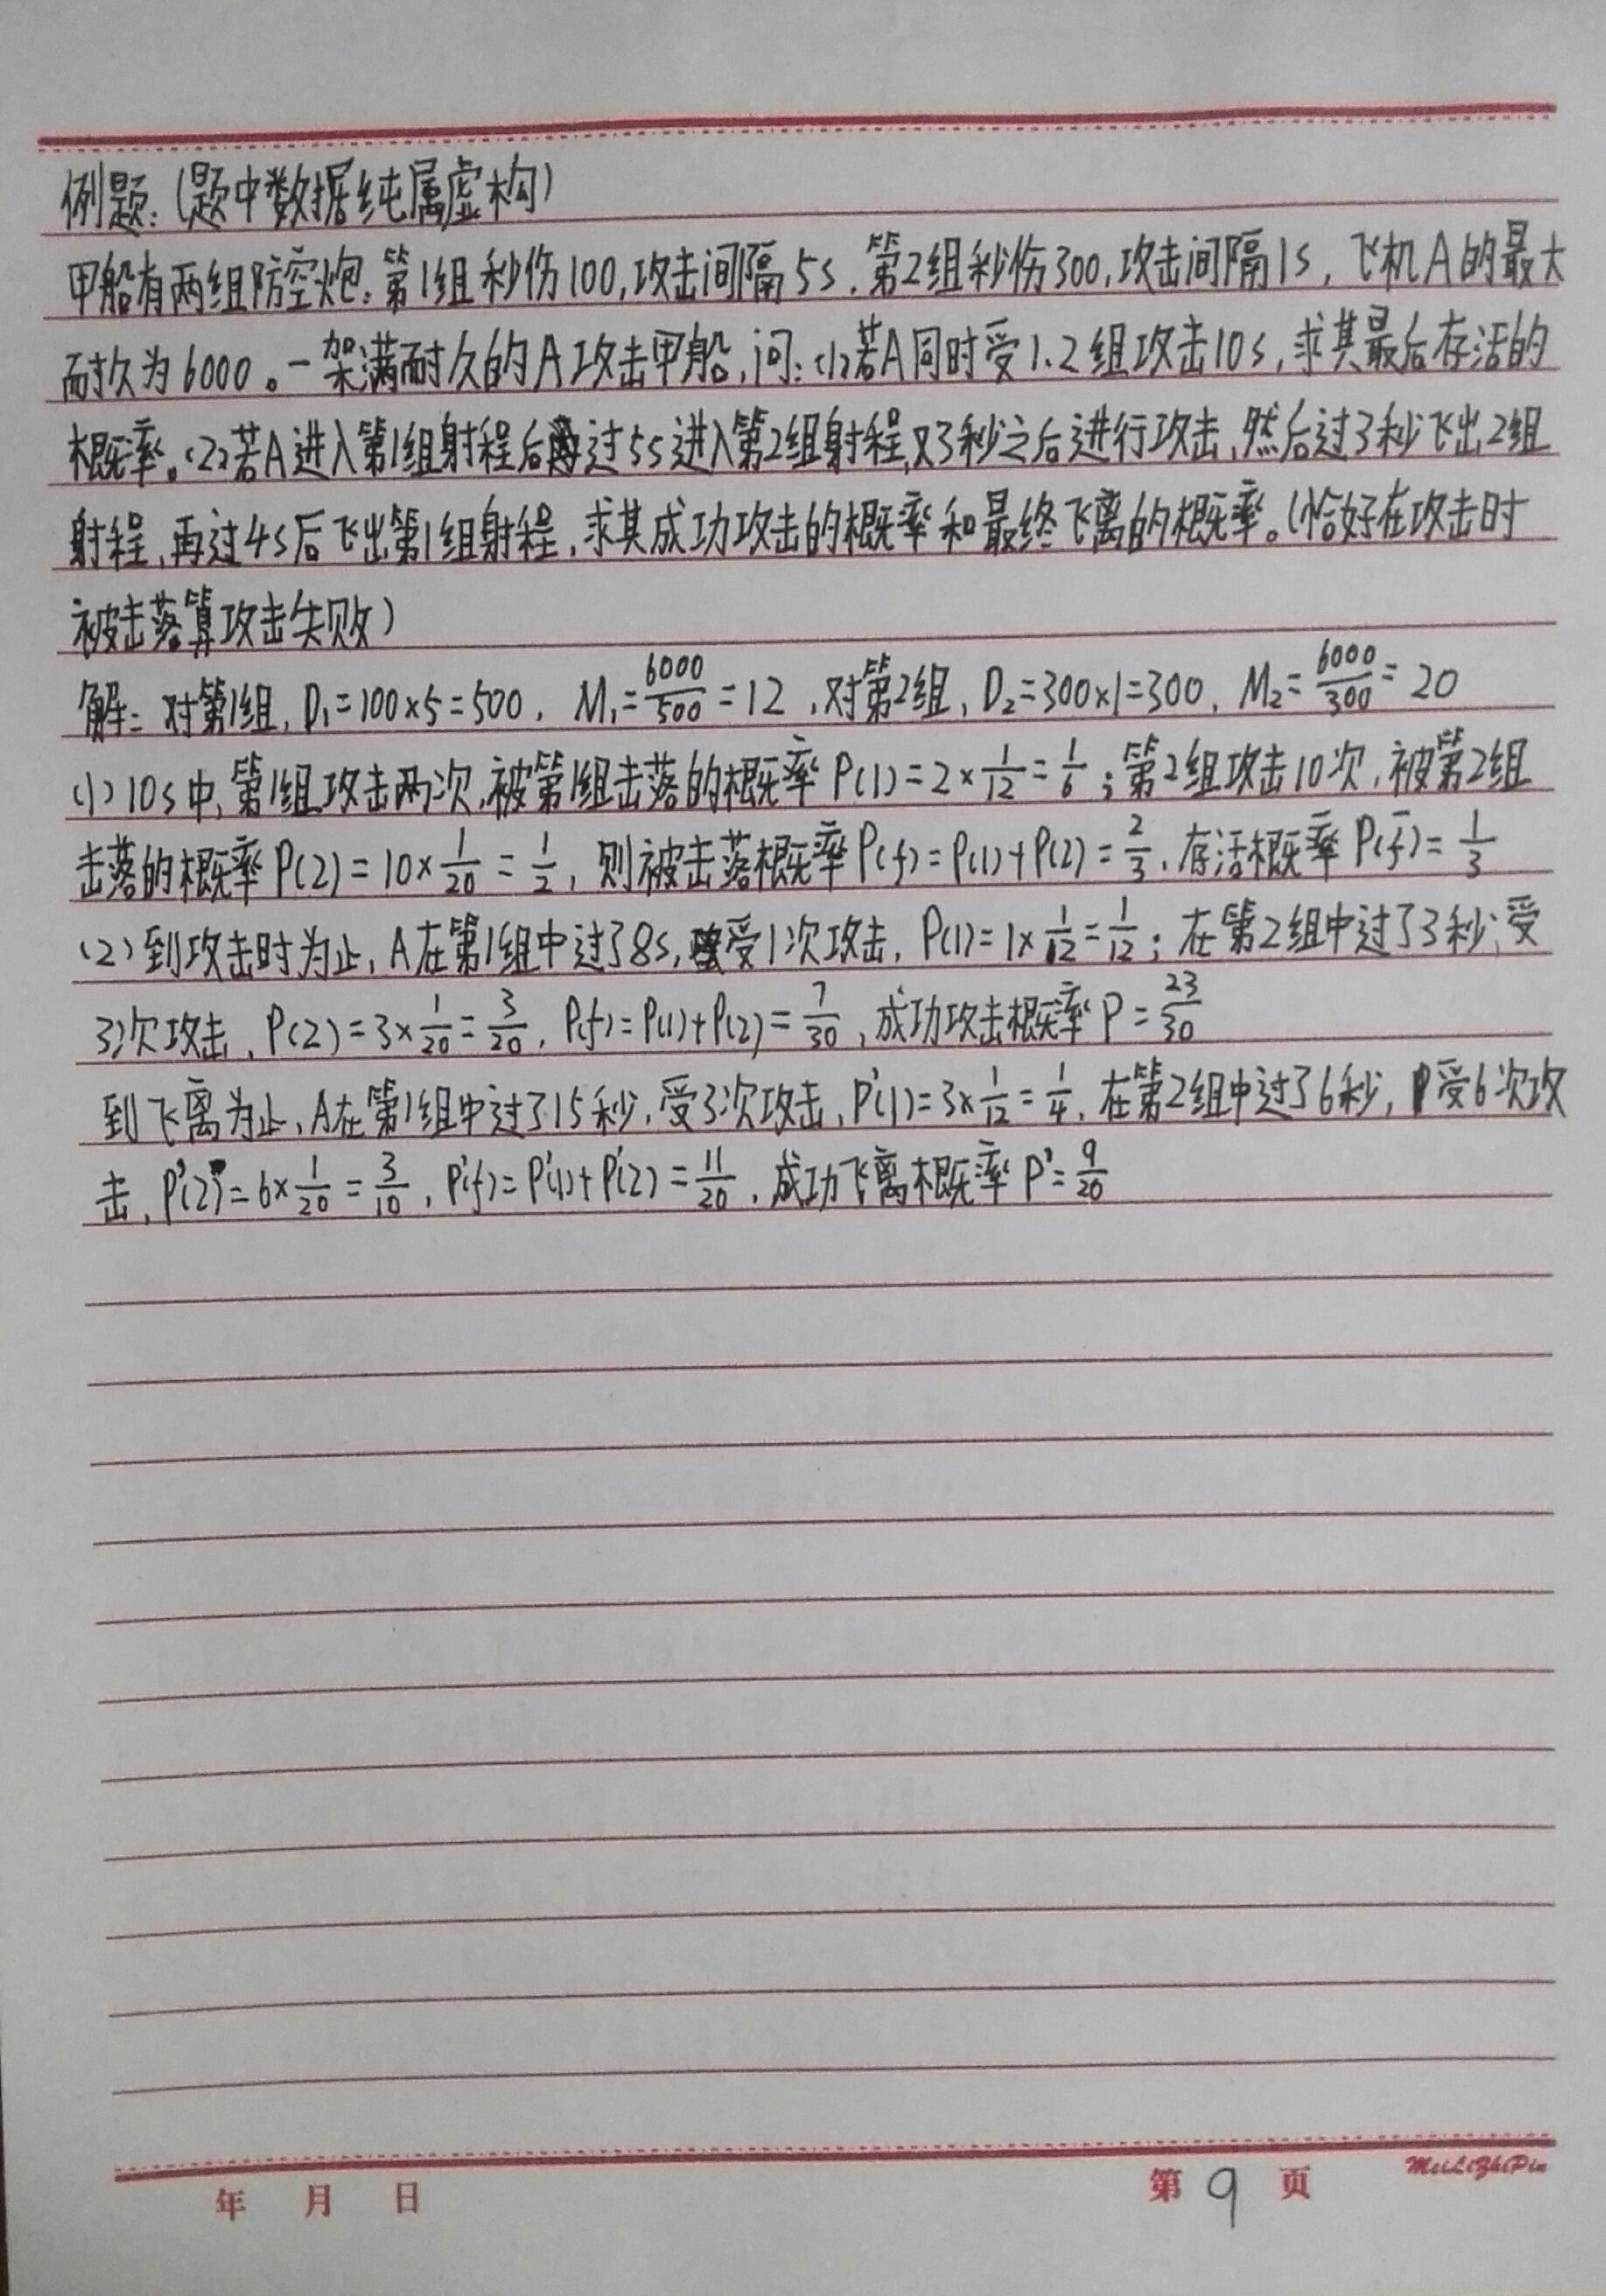 例题:(题中数据纯属虚构)
甲船有两组防空炮:第1组秒伤100,攻击间隔5s.第2组秒伤300,攻击间隔1s,飞机A的最大
耐久为6000。一架满耐久的A攻击甲船,问:(1)若A同时受1.2组攻击10s,求其最后存活的
概率。(2)若A进入第1组射程后过5s进入第2组射程,又3秒之后进行攻击,然后过3秒飞出2组
射程,再过4s后飞出第1组射程,求其成功攻击的概率和最终飞离的概率。(恰好在攻击时
被击落算攻击失败)
解:对第1组,D₁=100×5=500,M₁=6000/500=12,对第2组,D₂=300×1=300,M₂=6000/300=20
(1)10s中,第1组攻击两次,被第1组击落的概率P(1)=2×1/12=1/6;第2组攻击10次,被第2组
击落的概率P(2)=10×1/20=1/2,则被击落概率P(f)=P(1)+P(2)=2/3.存活概率P(f̄)=1/3
(2)到攻击时为止,A在第1组中过了8s,受1次攻击,P(1)=1×1/12=1/12;在第2组中过了3秒,受
3次攻击,P(2)=3×1/20=3/20,P(f)=P(1)+P(2)=7/30,成功攻击概率P=23/30
到飞离为止,A在第1组中过了15秒,受3次攻击,P'(1)=3×1/12=1/4,在第2组中过了6秒,受6次攻
击,P'(2)=6×1/20=3/10,P'(f)=P'(1)+P'(2)=11/20,成功飞离概率P'=9/20
年 月 日 第9页 MeiLiZhiPin